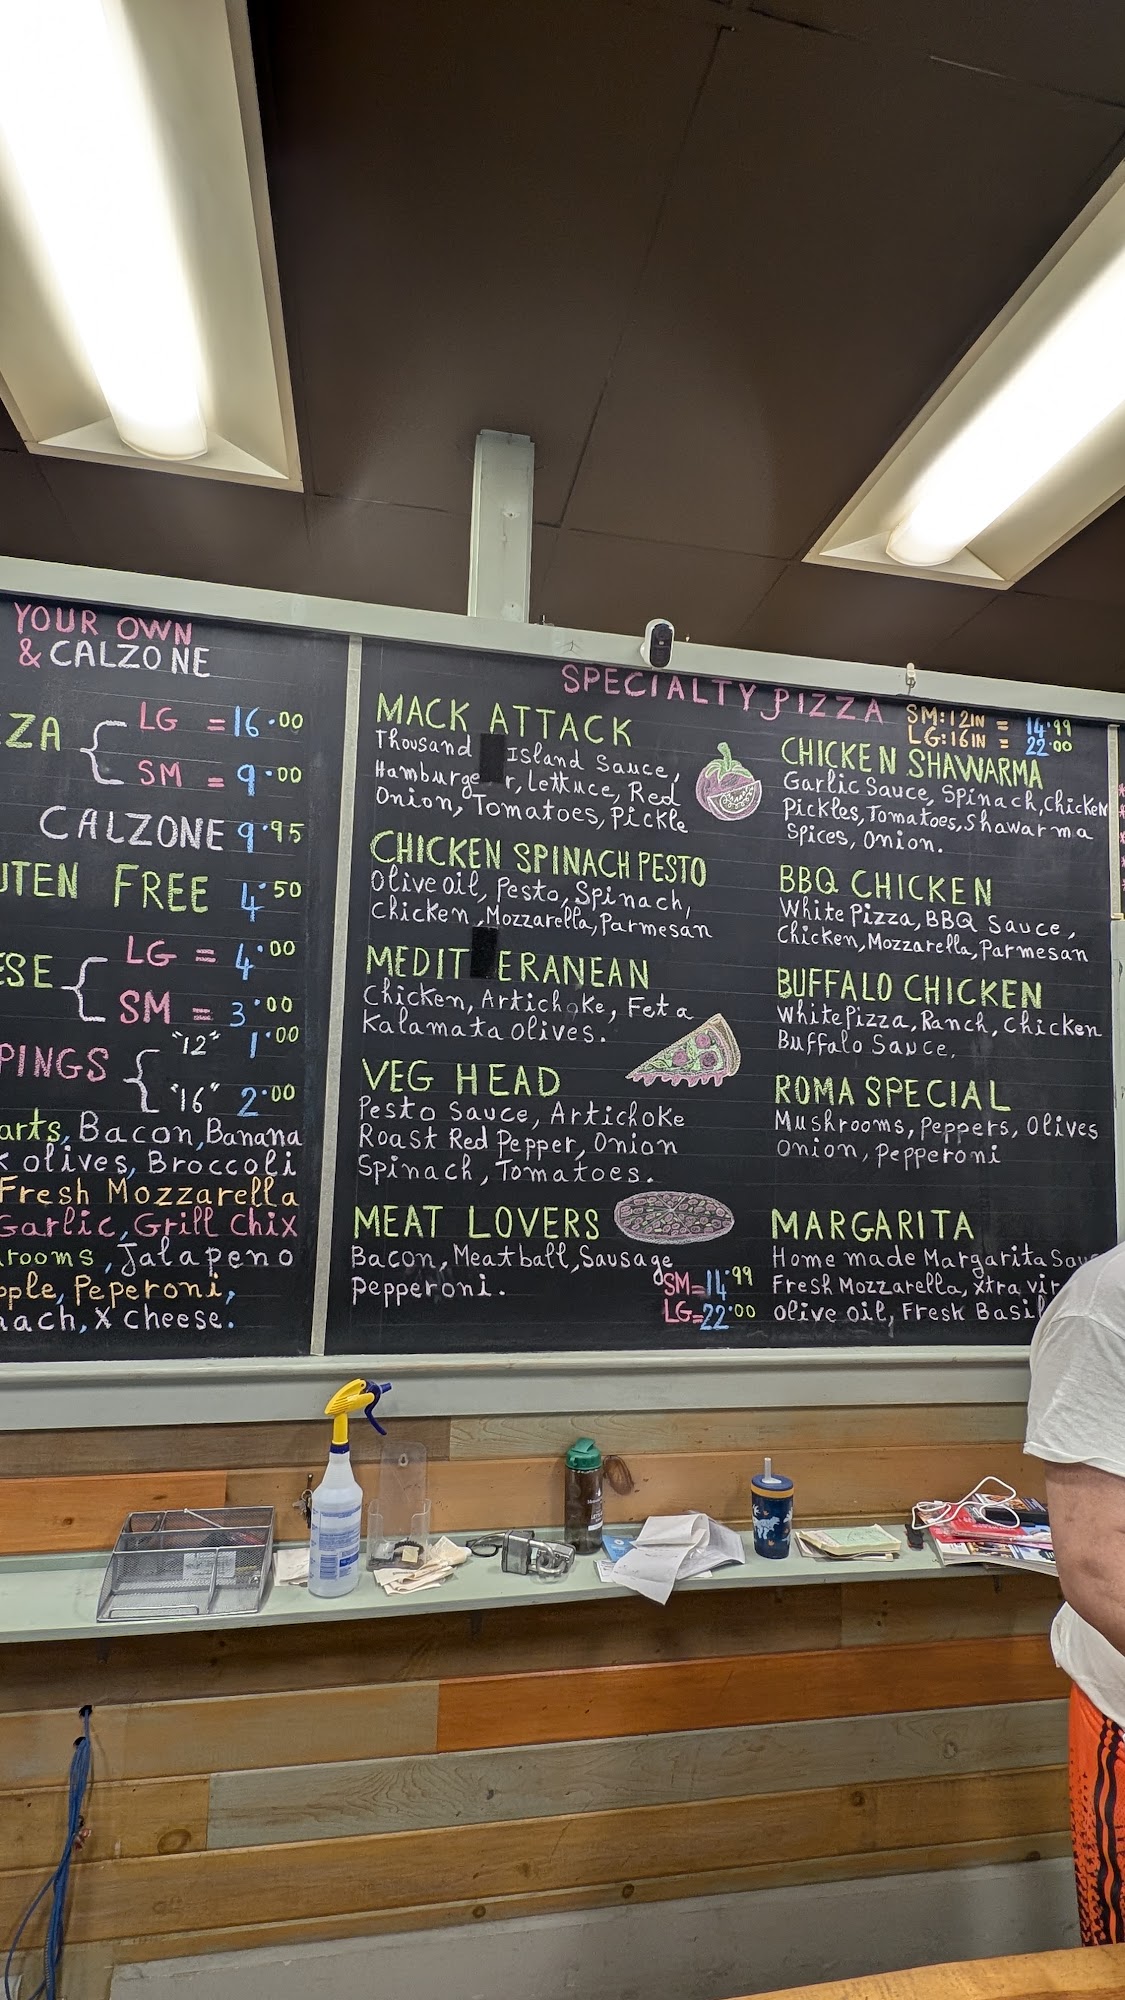 YOUR OWN
& CALZONE
LG = 16.00
SM = 9.00
CALZONE 9.95
FREE 4.50
LG = 4.00
SM = 3.00
"12" 1.00
"16" 2.00
Bacon, Banana
olives, Broccoli
Fresh Mozzarella
Garlic, Grill Chix
Jalapeno
Peperoni,
X cheese.
SPECIALTY PIZZA
SM:12IN = 14.99
LG:16IN = 22.00
MACK ATTACK
Thousand Island Sauce,
Hamburger, Lettuce, Red
Onion, Tomatoes, Pickle
CHICKEN SPINACH PESTO
Olive oil, Pesto, Spinach,
Chicken, Mozzarella, Parmesan
MEDITERANEAN
Chicken, Artichoke, Feta
Kalamata Olives.
VEG HEAD
Pesto Sauce, Artichoke
Roast Red Pepper, Onion
Spinach, Tomatoes.
MEAT LOVERS
Bacon, Meatball, Sausage
Pepperoni.
SM=14.99
LG=22.00
CHICKEN SHAWARMA
Garlic Sauce, Spinach, Chicken
Pickles, Tomatoes, Shawarma
Spices, Onion.
BBQ CHICKEN
White Pizza, BBQ Sauce,
Chicken, Mozzarella, Parmesan
BUFFALO CHICKEN
White Pizza, Ranch, Chicken
Buffalo Sauce.
ROMA SPECIAL
Mushrooms, Peppers, Olives
Onion, Pepperoni
MARGARITA
Home made Margarita
Fresh Mozzarella, Xtra
olive oil, Fresh Basil